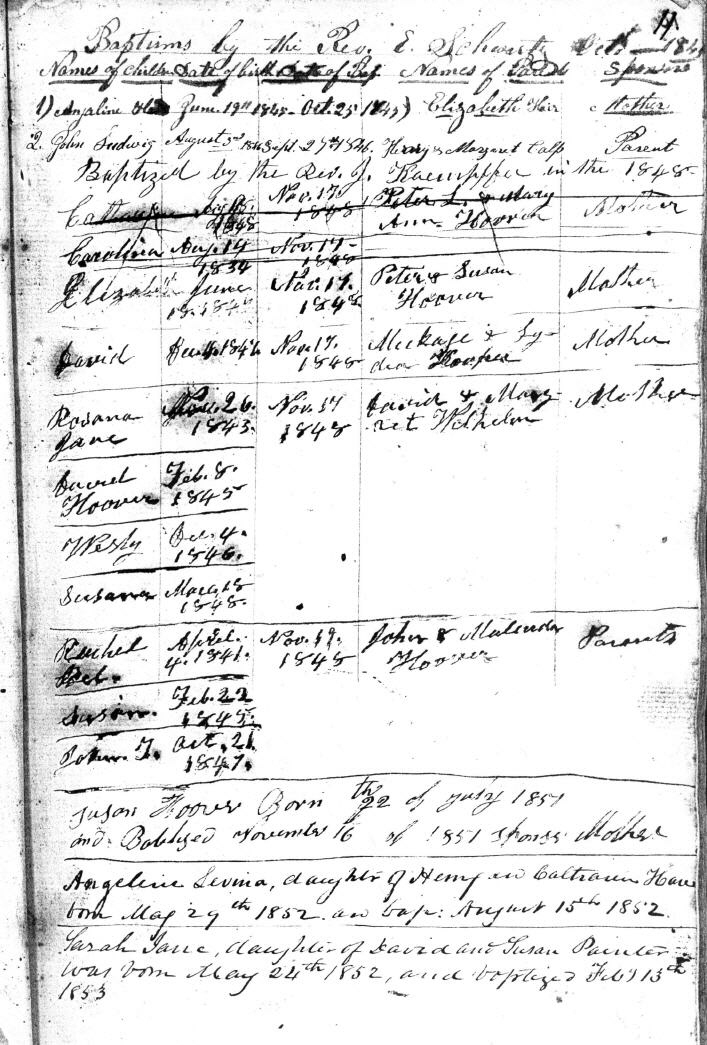 11
Baptisms by the Rev. E. Schwartz Oct 184
Names of Children Date of birth Date of Bap. Names of Parents Sponsors
1) Angaline June 19th 1845 Oct. 25 1845) Elizabeth Mother
2. John Ludwig August 3rd Sept. 27th 1846. Henry & Margaret Calp Parent
Baptized by the Rev. J. Kaempffer in the 1848
Nov. 17 Peter L. & Mary
1848 1848 Ann Hoover Mother
Carolina Aug. 14 Nov. 17
1834 1848
Elizabeth June Nov. 17. Peter & Susan Mother
18. 184 1848 Hoover
David Dec. 4. 184 Nov. 17. & Ly- Mother
1848 dia Hoover
Rosana Nov. 26. Nov. 17 David & Marg- Mother
Jane 1843. 1848 ret Wilhelm
David Feb. 8.
Hoover 1845
Wesly Oct. 4.
1846.
Susana Marc. 18
1848.
Rachel Apriel Nov. 17. John & Malinda Parents
Reb. 4. 1841. 1848 Hoover
Susan. Feb. 22
1845.
John. T. Oct. 21.
1847.
Susan Hoover Born th 22 of july 1851
and Babtized november 16 of 1851 Mother
Angeline Levina, daughter of Henry an Catharin
born May 29th 1852 an bap: August 15th 1852.
Sarah Jane, daughter of David and Susan Painter
was born May 24th 1852, and baptized Feby 13th
1853